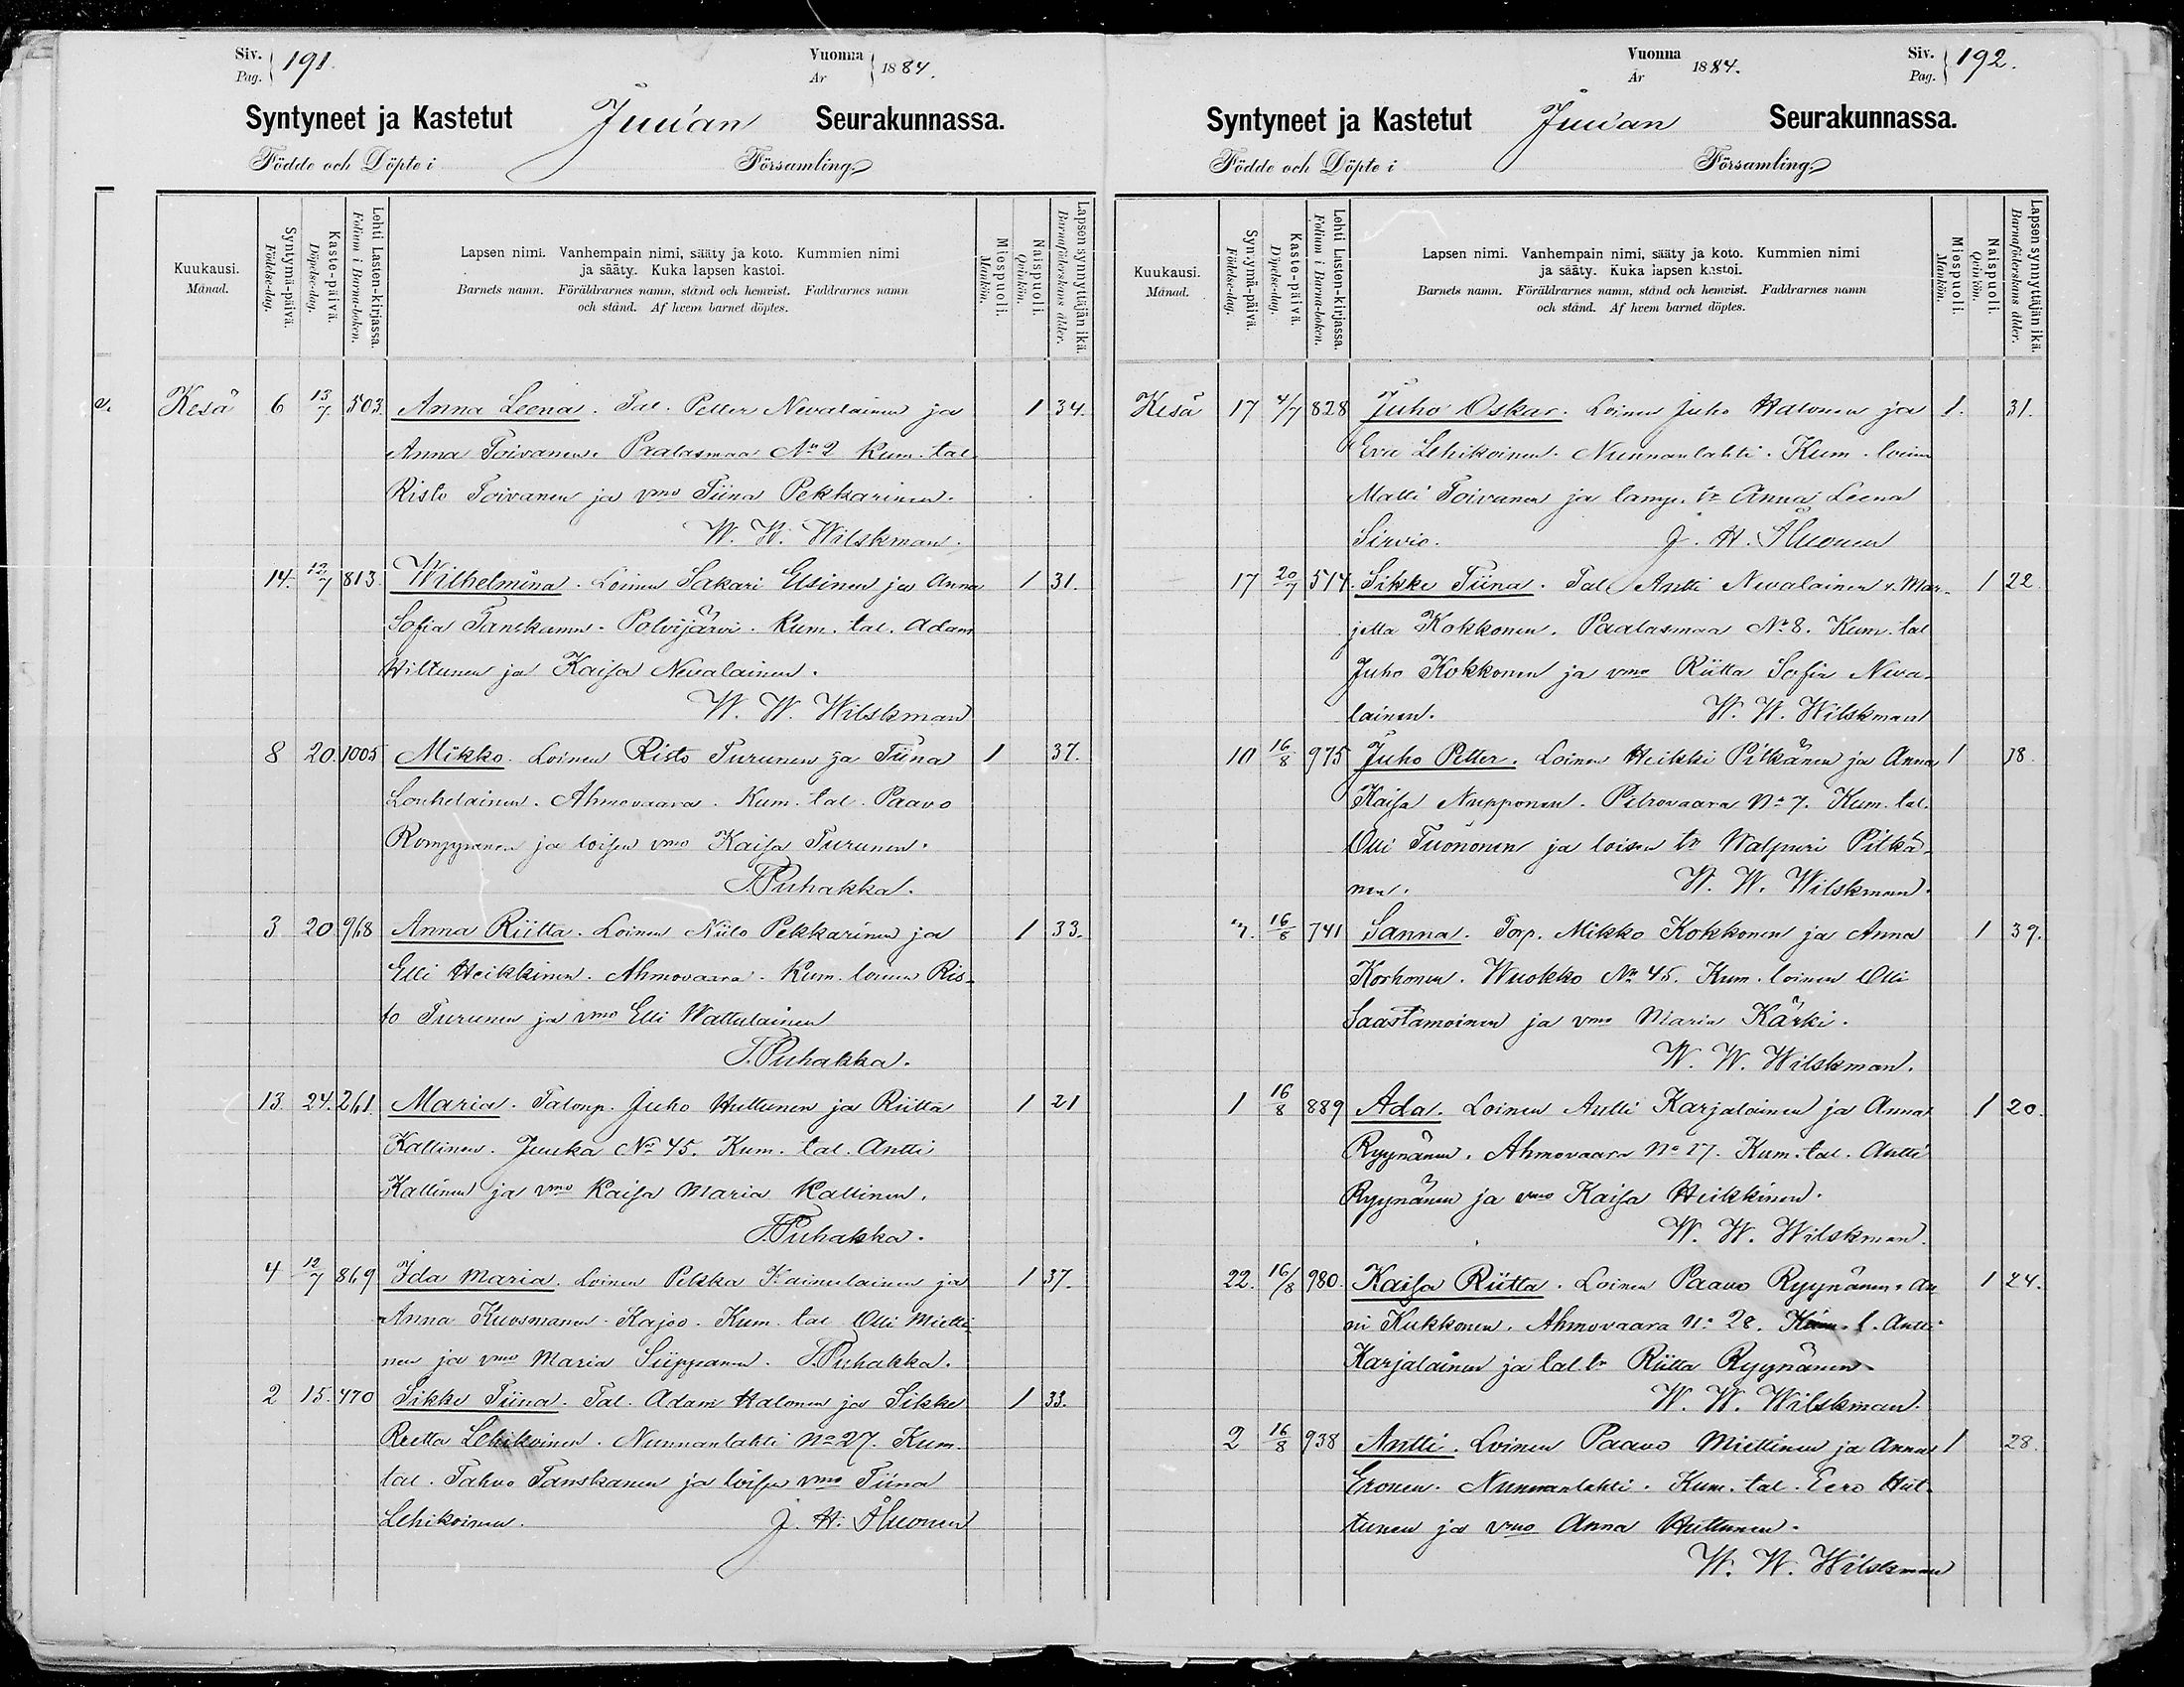 Siv. Pag. 191.
Vuonna År 1884.
Syntyneet ja Kastetut Juuan Seurakunnassa.
Födde och Döpte i Församling.
Kuukausi. Månad.
Syntymä-päivä. Födelse-dag.
Kaste-päivä. Döpelse-dag.
Lehti Lasten-kirjassa. Folium i Barna-boken.
Lapsen nimi. Vanhempain nimi, sääty ja koto. Kummien nimi
ja sääty. Kuka lapsen kastoi.
Barnets namn. Föräldrarnes namn, stånd och hemvist. Faddrarnes namn
och stånd. Af hvem barnet döptes.
Miespuoli. Mankön.
Naispuoli. Qvinkön.
Lapsen synnyttäjän ikä. Barnaföderskans ålder.
Kesä 6 13/7 503. Anna Leena. Tal. Petter Nevalainen ja 1 34.
Anna Toivanen. Paalasmaa No 2 Kum. tal
Risto Toivanen ja vmo Tiina Pekkarinen.
W. W. Wilskman.
14. 12/7 813. Wilhelmina. Loinen Sakari Elsinen ja Anna 1 31.
Sofia Tanskanen. Polvijärvi. Kum. tal. Adam
Wiltunen ja Kaisa Nevalainen.
W. W. Wilskman
8 20. 1005 Mikko. Loinen Risto Turunen ja Tiina 1 37.
Louhelainen. Ahmovaara. Kum. tal. Paavo
Romppanen ja loisen vmo Kaisa Turunen.
J. Puhakka.
3 20 968 Anna Riitta. Loinen Niilo Pekkarinen ja 1 33.
Elli Heikkinen. Ahmovaara. Kum. loinen Ris-
to Turunen ja vmo Elli Wattulainen
J. Puhakka.
13. 24. 261. Maria. Talonp. Juho Huttunen ja Riitta 1 21
Kallinen. Juuka No 45. Kum. tal. Antti
Kallinen ja vmo Kaisa Maria Kallinen.
J. Puhakka.
4 12/7 869 Ida Maria. Loinen Pekka Kainulainen ja 1 37.
Anna Kuosmanen. Kajoo. Kum. tal Olli Mietti-
nen ja vmo Maria Siippanen. J. Puhakka.
2 15. 470 Sikke Tiina. Tal. Adam Halonen ja Sikke 1 33.
Reetta Lehikoinen. Nunnanlahti No 27. Kum.
tal. Tahvo Tanskanen ja loisen vmo Tiina
Lehikoinen. J. H. Åhronen
Vuonna År 1884.
Siv. Pag. 192.
Syntyneet ja Kastetut Juuan Seurakunnassa.
Födde och Döpte i Församling.
Kuukausi. Månad.
Syntymä-päivä. Födelse-dag.
Kaste-päivä. Döpelse-dag.
Lehti Lasten-kirjassa. Folium i Barna-boken.
Lapsen nimi. Vanhempain nimi, sääty ja koto. Kummien nimi
ja sääty. Kuka lapsen kastoi.
Barnets namn. Föräldrarnes namn, stånd och hemvist. Faddrarnes namn
och stånd. Af hvem barnet döptes.
Miespuoli. Mankön.
Naispuoli. Qvinkön.
Lapsen synnyttäjän ikä. Barnaföderskans ålder.
Kesä 17 4/7 828 Juho Oskar. Loinen Juho Halonen ja 1. 31.
Eva Lehikoinen. Nunnanlahti. Kum. loinen
Matti Toivanen ja lamp. tr Anna Leena
Sirvio. J. H.
17 20/7 514. Sikke Tiina. Tal. Antti Nevalainen v. Mar- 1 22
jetta Kokkonen. Paalasmaa No 8. Kum. tal
Juho Kokkonen ja vmo Riitta Sofia Neva-
lainen. W. W. Wilskman
10 16/8 975 Juho Petter. Loinen Heikki Pitkänen ja Anna 1 38.
Kaisa Nupponen. Petrovaara No 7. Kum. tal.
Olli Tuononen ja loisen tr Walpuri Pitkä-
nen. W. W. Wilskman.
7. 16/8 741 Sanna. Torp. Mikko Kokkonen ja Anna 1 39.
Korhonen. Wuokko No 45. Kum. loinen Olli
Saastamoinen ja vmo Maria Kärki.
W. W. Wilskman.
1 16/8 889 Ada. Loinen Antti Karjalainen ja Anna 1 20.
Ryynänen. Ahmovaara No 17. Kum. tal. Antti
Ryynänen ja vmo Kaisa Heikkinen.
W. W. Wilskman.
22. 16/8 980. Kaisa Riitta. Loinen Paavo Ryynänen v. An 1 24.
ni Kukkonen. Ahmovaara No 28. Kum. l. Antti
Karjalainen ja tal. tr Riitta Ryynänen.
W. W. Wilskman.
2 16/8 938 Antti. Loinen Paavo Miettinen ja Anna 1 28.
Eronen. Nunnanlahti. Kum. tal. Eero Hut-
tunen ja vmo Anna Huttunen.
W. W. Wilskman